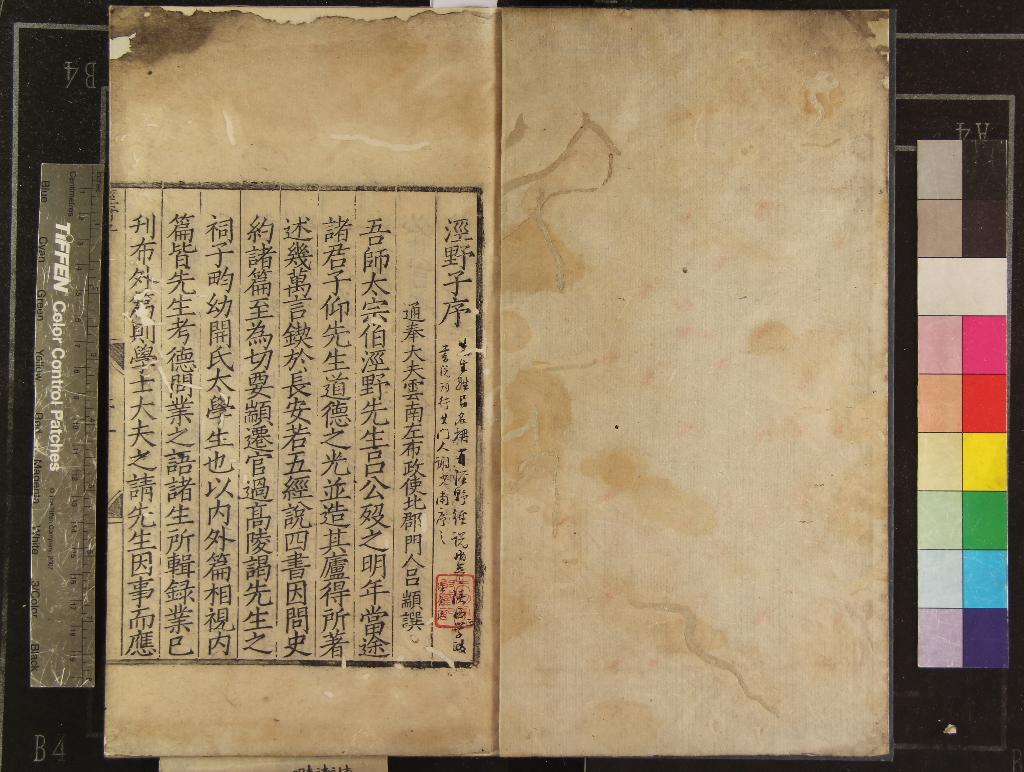 涇野子序
先生姓呂名柟有涇野經說
通奉大夫雲南左布政使北郡門人呂顓譔
吾師太宗伯涇野先生呂公歿之明年當途
諸君子仰先生道德之光並造其廬得所著
述幾萬言鍥於長安若五經說四書因問史
約諸篇至為切要顓遷官過高陵謁先生之
祠子畇幼開氏太學生也以內外篇相視内
篇皆先生考德問業之語諸生所輯録業已
刋布外篇則學士大夫之請先生因事而應
TIFFEN Color Control Patches
Blue
Cyan
Green
Yellow
Red
Magenta
White
3/Color
Black
Centimetres
B4
B4
A4